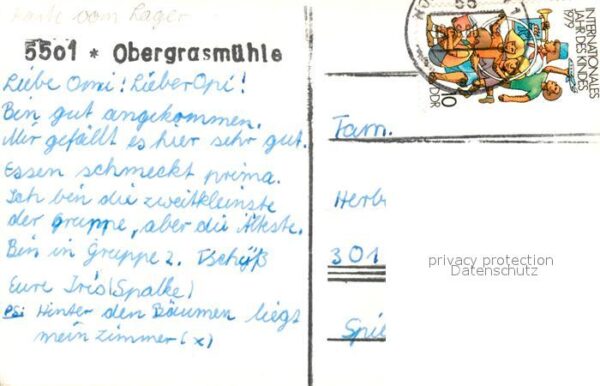 Karte vom Lager
5501 * Obergrasmühle
Liebe Omi! Lieber Opi!
Bin gut angekommen.
Mir gefällt es hier sehr gut.
Essen schmeckt prima.
Ich bin die zweitkleinste
der Gruppe, aber die Älteste.
Bin in Gruppe 2. Tschüß
Eure Iris (Spalke)
PS: Hinter den Bäumen liegt
mein Zimmer (x)
INTERNATIONALES
JAHR DES KINDES
1979
DDR
10
Fam.
Herb
301
Spie
privacy protection
Datenschutz